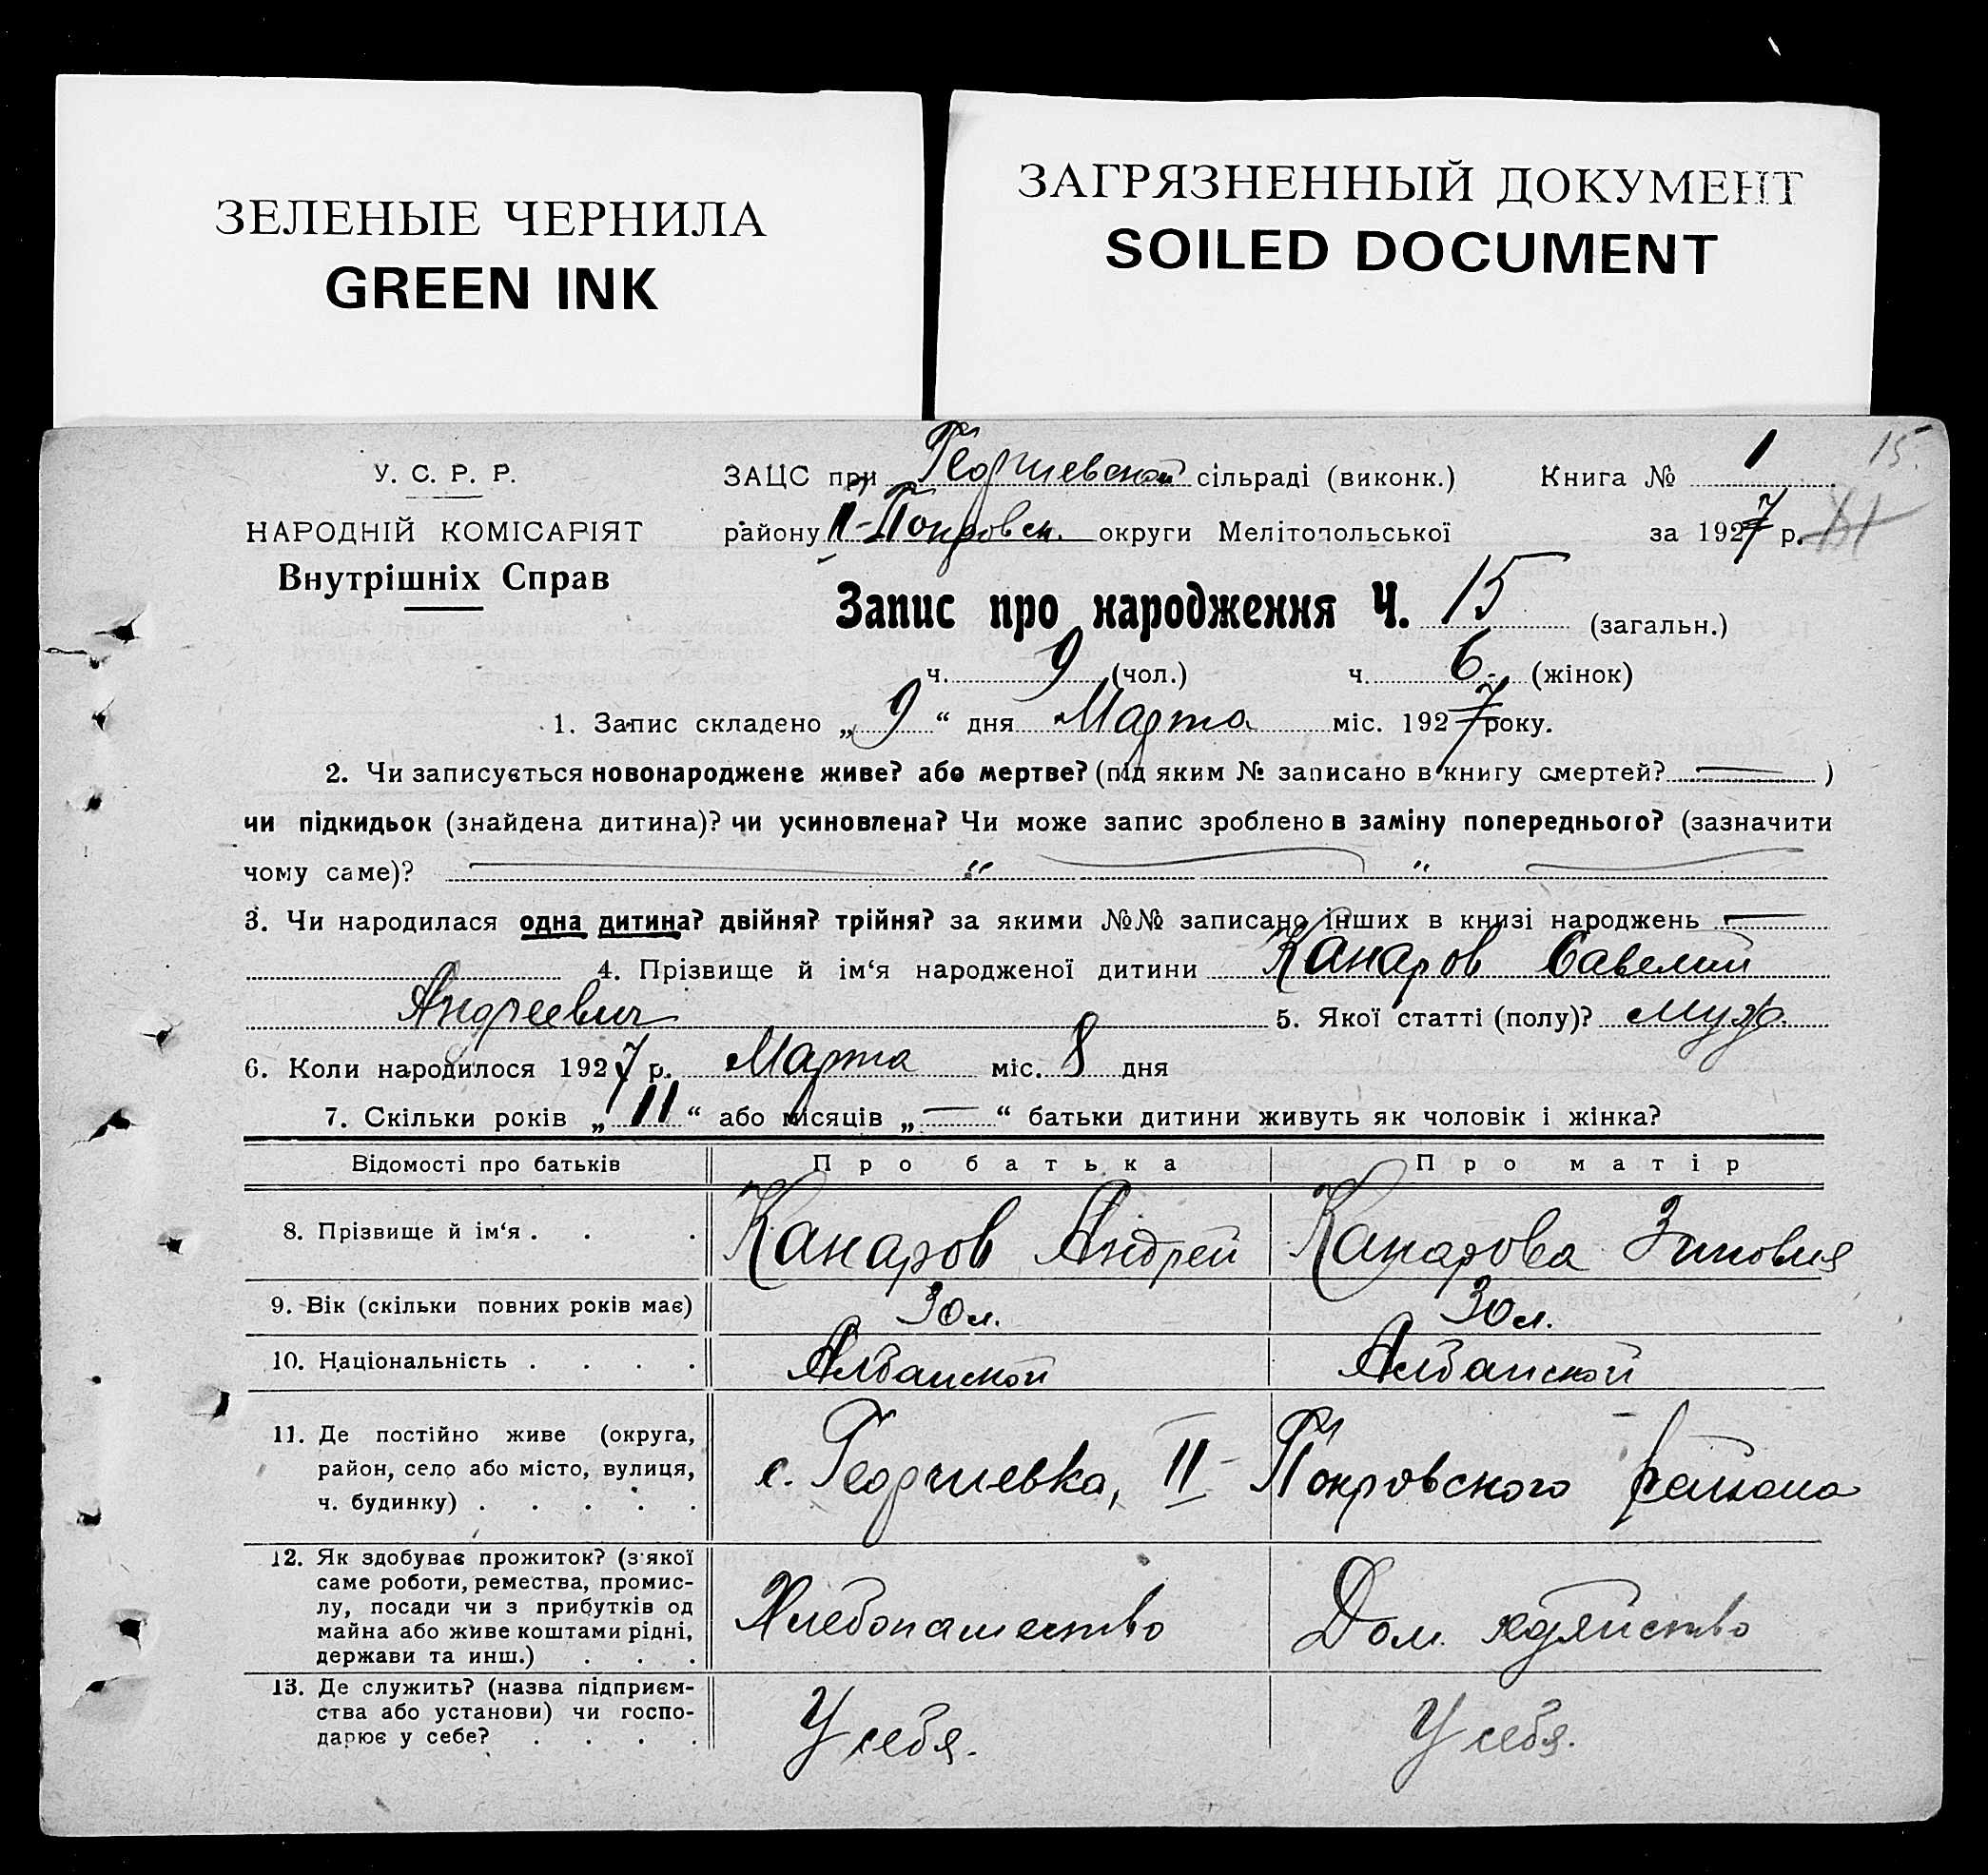 ЗЕЛЕНЫЕ ЧЕРНИЛА
GREEN INK
ЗАГРЯЗНЕННЫЙ ДОКУМЕНТ
SOILED DOCUMENT
15.
У. С. Р. Р.
НАРОДНІЙ КОМІСАРІЯТ
Внутрішніх Справ
ЗАЦС при Георгиевской сільраді (виконк.) Книга № 1
району II-Покровск. округи Мелітопольської за 1927 р.
Запис про народження Ч. 15 (загальн.)
ч. 9 (чол.) ч. 6. (жінок)
1. Запис складено „9“ дня Марта міс. 1927 року.
2. Чи записується новонароджене живе? або мертве? (під яким № записано в книгу смертей? — )
чи підкидьок (знайдена дитина)? чи усиновлена? Чи може запис зроблено в заміну попереднього? (зазначити
чому саме)? — " — " —
3. Чи народилася одна дитина? двійня? трійня? за якими №№ записано інших в книзі народжень —
4. Прізвище й ім‘я народженої дитини Канаров Савелий
Андреевич 5. Якої статті (полу)? муж.
6. Коли народилося 1927 р. Марта міс. 8 дня
7. Скільки років „11“ або місяців „—“ батьки дитини живуть як чоловік і жінка?
Відомості про батьків Про батька Про матір
8. Прізвище й ім‘я . . . Канаров Андрей Канарова Зиновия
9. Вік (скільки повних років має) 30 л. 30 л.
10. Національність . . . . Албанской Албанской
11. Де постійно живе (округа,
район, село або місто, вулиця,
ч. будинку) . . . . .
с. Георгиевка, II-Покровского района
12. Як здобуває прожиток? (з якої
саме роботи, ремества, промис-
лу, посади чи з прибутків од
майна або живе коштами рідні,
держави та инш.) . . .
Хлебопашество Дом. хозяйство
13. Де служить? (назва підприєм-
ства або установи) чи госпо-
дарює у себе? . . . .
У себя. У себя.